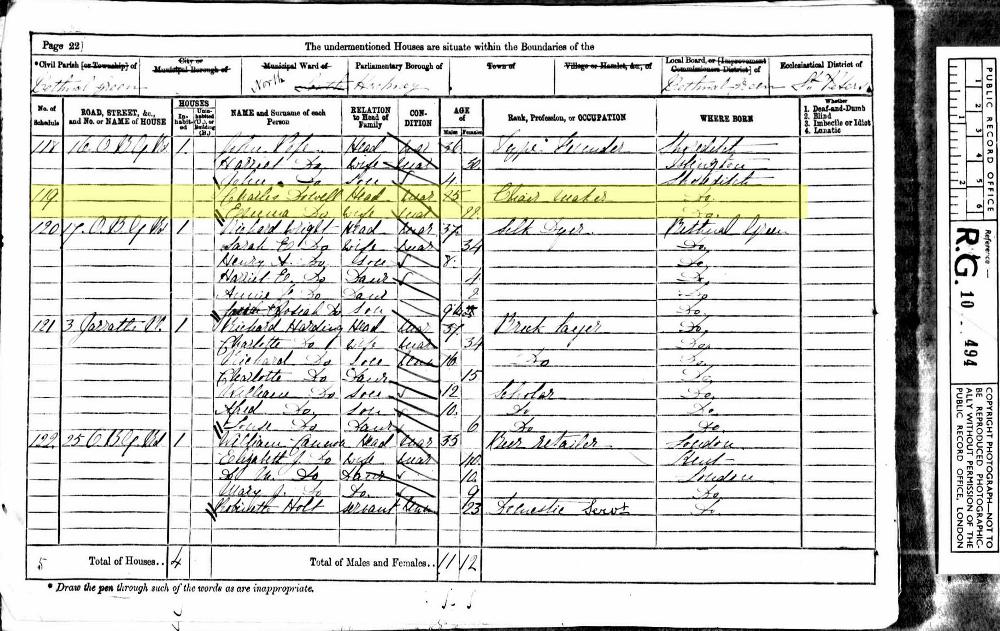 Page 22
The undermentioned Houses are situate within the Boundaries of the
*Civil Parish [or Township] of
City or Municipal Borough of
Municipal Ward of
Parliamentary Borough of
Town of
Village or Hamlet, &c., of
Local Board, or [Improvement Commissioners District] of
Ecclesiastical District of
Bethnal Green North Hackney Bethnal Green St Peters
No. of Schedule
ROAD, STREET, &c., and No. or NAME of HOUSE
HOUSES
Inhabited
Uninhabited (U.), or Building (B.)
NAME and Surname of each Person
RELATION to Head of Family
CONDITION
AGE of
Males Females
Rank, Profession, or OCCUPATION
WHERE BORN
Whether
1. Deaf-and-Dumb
2. Blind
3. Imbecile or Idiot
4. Lunatic
118 16 O B G Rd 1 John Head Mar 36 Type Founder Shoreditch
Harriet Do Wife Mar 30 Islington
John Do Son 4 Shoreditch
119 Charles Head Mar 45 Chair Maker Do
Emma Do Wife Mar Do
120 17 O B G Rd 1 Richard Wright Head Mar 37 Silk Dyer Bethnal Green
Sarah E Do Wife Mar 34 Do
Henry Do Son 8 Do
Harriet E Do Daur 4 Do
Annie Do Daur 2 Do
Josiah Do Son Do
121 3 1 Richard Harding Head Mar 37 Brick layer Do
Charlotte Do Wife Mar 34 Do
Richard Do Son 16 Do Do
Charlotte Do Daur 15 Do
William Do Son 12 Scholar Do
Alfred Do Son 10 Do Do
Do Daur 6 Do Do
122 25 O B G Rd 1 William Head Mar 35 Beer retailer London
Elizabeth J Do Wife Mar 40 Kent
Do Daur London
Mary J Do Do 9 Do
Holt Servant 23 Domestic Servt Do
5 Total of Houses.. 4 Total of Males and Females.. 11 12
* Draw the pen through such of the words as are inappropriate.
PUBLIC RECORD OFFICE
1 2 3 4 5 6
Reference :—
R.G. 10 494
COPYRIGHT PHOTOGRAPH—NOT TO BE REPRODUCED PHOTOGRAPHICALLY WITHOUT PERMISSION OF THE PUBLIC RECORD OFFICE, LONDON